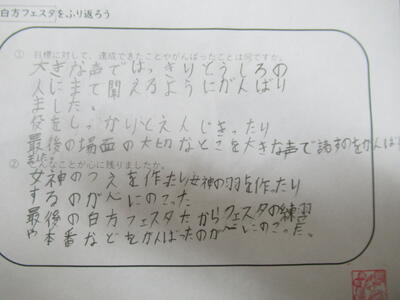 白方フェスタをふり返ろう
① 目標に対して、達成できたことやがんばったことは何ですか。
大きな声ではっきりとうしろの
人にまで聞えるようにがんばり
ました。
役をしっかりとえんじきったり
最後の場面の大切なとこを大きな声で話すのをがんば
ました。
② どんなことが心に残りましたか。
女神のつえを作ったり女神の羽を作ったり
するのが心にのこった
最後の白方フェスタだからフェスタの練習
や本番などをがんばったのが心にのこった。